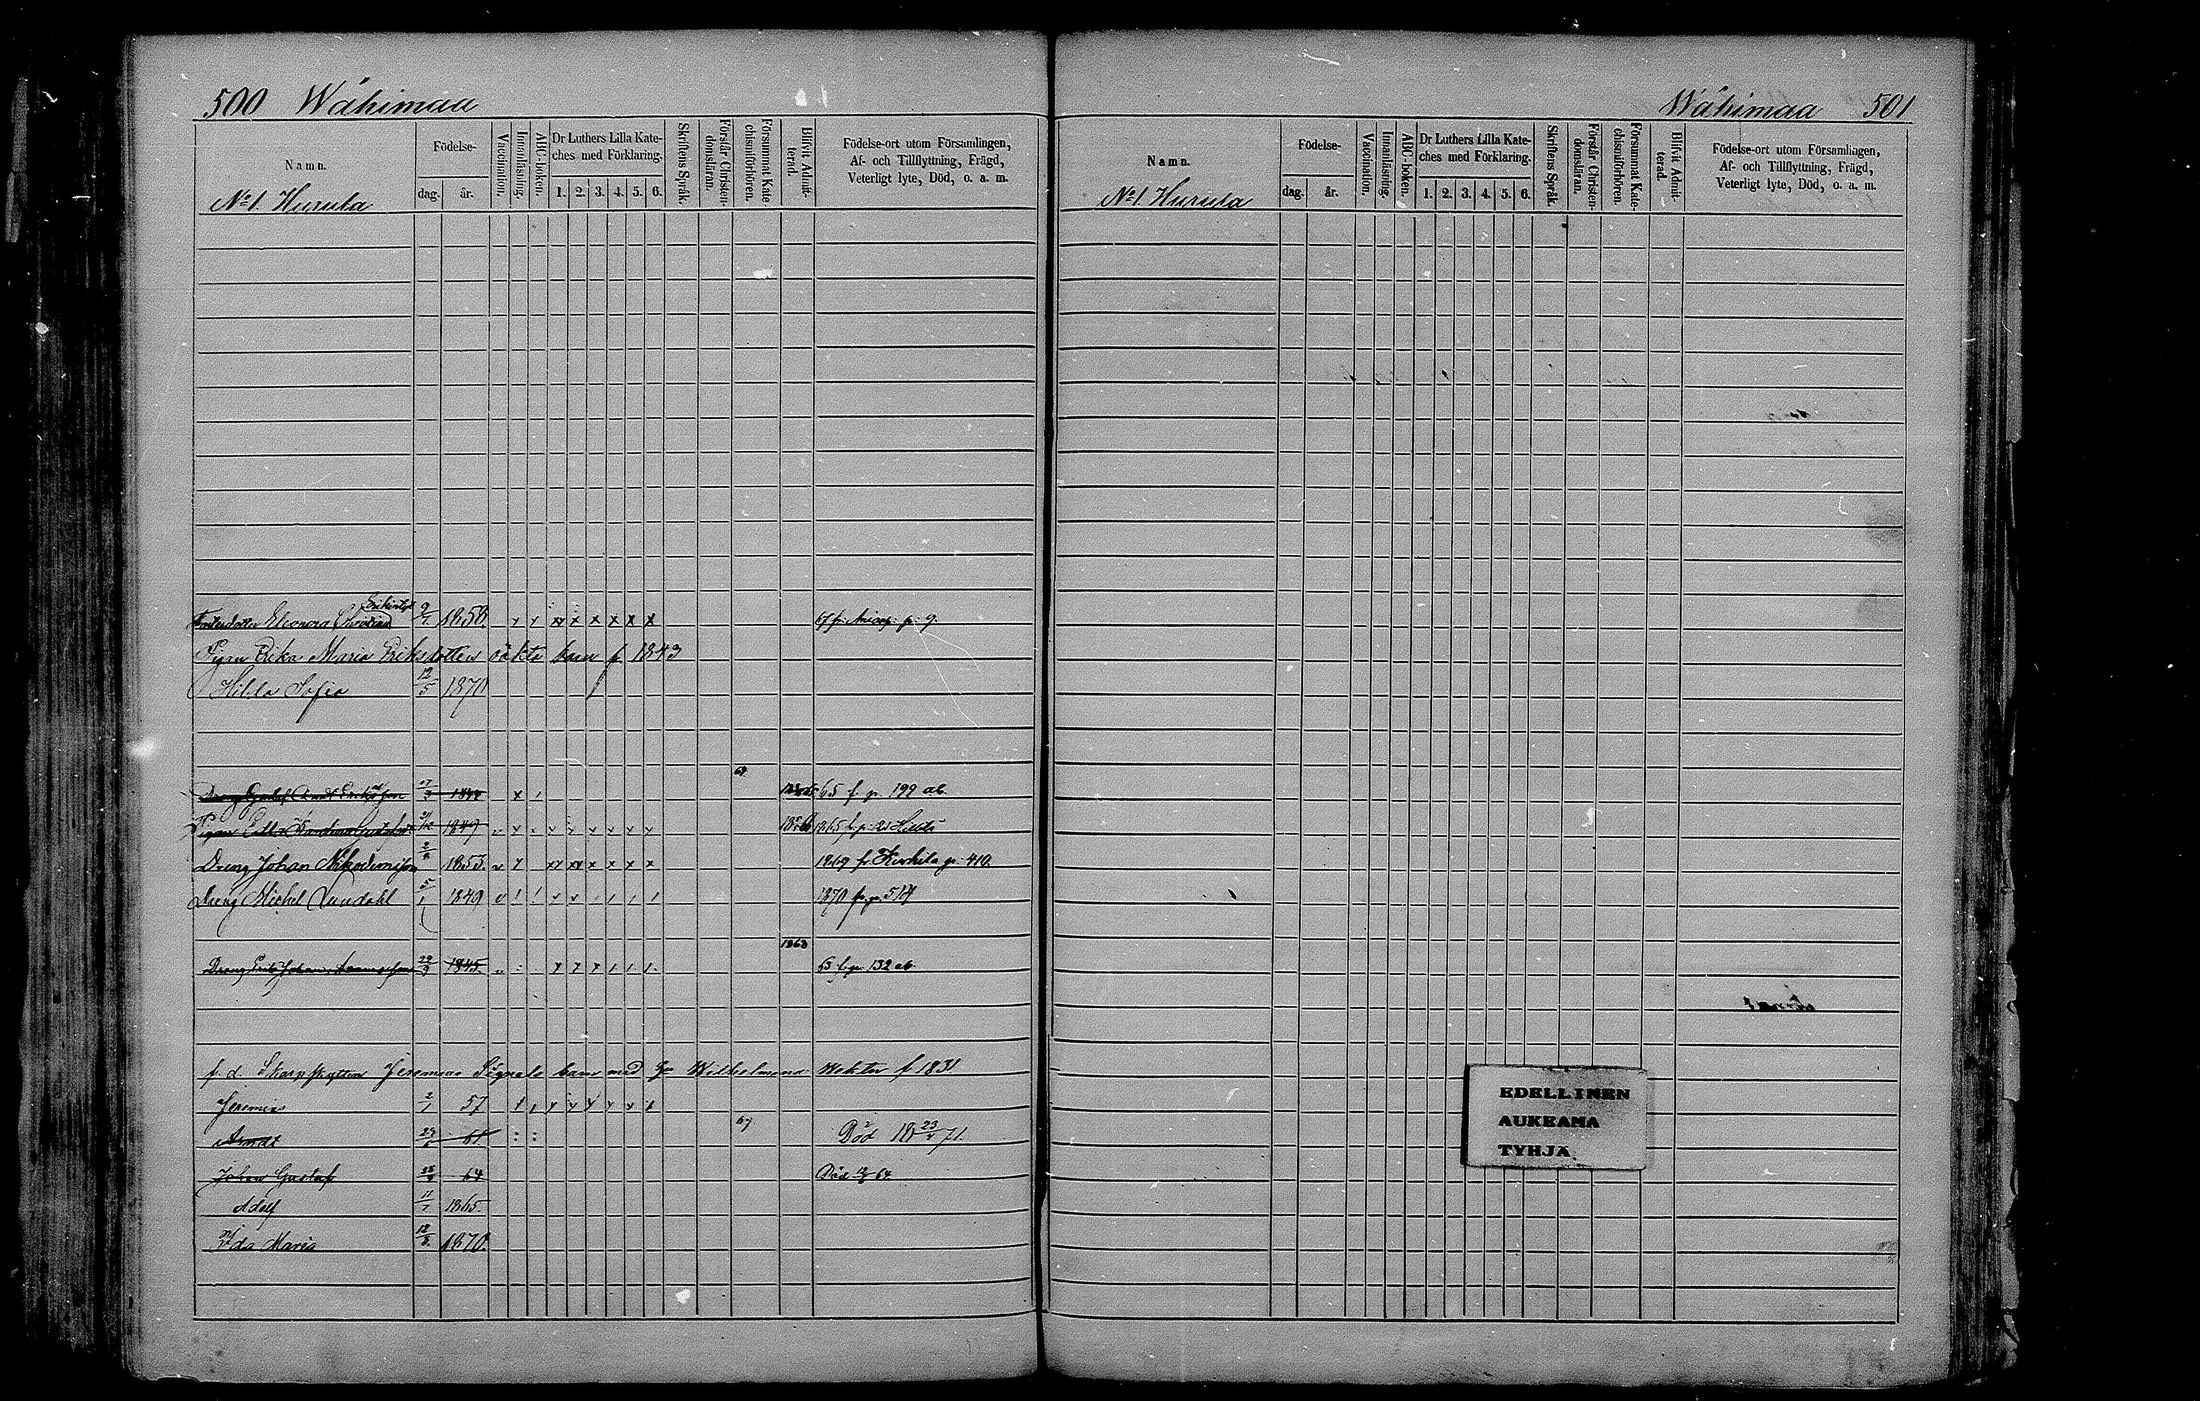 500 Wåhimaa
Namn.
No 1. Hurula
Födelse-
dag. år.
Vaccination.
Innanläsning.
ABC-boken.
Dr Luthers Lilla Kate-
ches med Förklaring.
1. 2. 3. 4. 5. 6.
Skriftens Språk.
Förstår Christen-
domsläran.
Försummat Kate
chismiförhören.
Blifvit Admit-
terad.
Födelse-ort utom Församlingen,
Af- och Tillflyttning, Frägd,
Veterligt lyte, Död, o. a. m.
Eleonora 9/7 1850. x x xx x x x x x p. 9.
Pigan Erika Maria Eriksdotters oäkta barn f 1843
Hilda Sofia 12/5 1870
67
Dreng Eriksson x 65 f. p. 199 ab.
Pigan 1849 1865 f. p. 21
Dreng Johan Nikodemisson 2/8 1853. v x xx x x x x 1869 fr p. 410.
Dreng Michel Lundahl 5/1 1849 v 1870 fr. p. 514
1863
Dreng Erik Johan 29/9 1845. 63 f. p. 132 ab.
f. d. Skarpskytten Jeremias Signals barn med Wilhelmina f 1831
Jeremias 2/1 57
67
Arndt 61 Död 18 23/4 71.
Johan Gustaf 64 Död 64
Adolf 11/7 1865.
Ida Maria 12/8. 1870.
Wåhimaa 501
Namn.
No 1. Hurula
Födelse-
dag. år.
Vaccination.
Innanläsning.
ABC-boken.
Dr Luthers Lilla Kate-
ches med Förklaring.
1. 2. 3. 4. 5. 6.
Skriftens Språk.
Förstår Christen-
domsläran.
Försummat Kate-
chismiförhören.
Blifvit Admit-
terad.
Födelse-ort utom Församlingen,
Af- och Tillflyttning, Frägd,
Veterligt lyte, Död, o. a. m.
EDELLINEN
AUKEAMA
TYHJÄ.